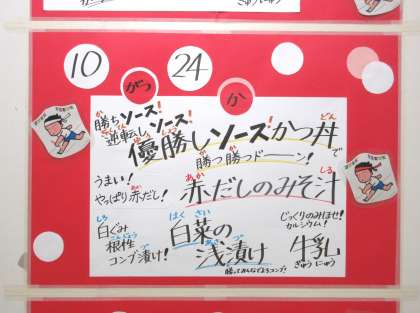 10
がつ
24
か
勝ちソース!
逆転しソース!
優勝しソースかつ丼で
勝つ勝つドーーン!
うまい!
やっぱり赤だし!
赤だしのみそ汁
白ぐみ
根性
コンブ漬け!
白菜の
浅漬け
勝ってみんなでよろコンブ!
じっくりのみほせ!
カルシウム!
牛乳
ぎゅうにゅう